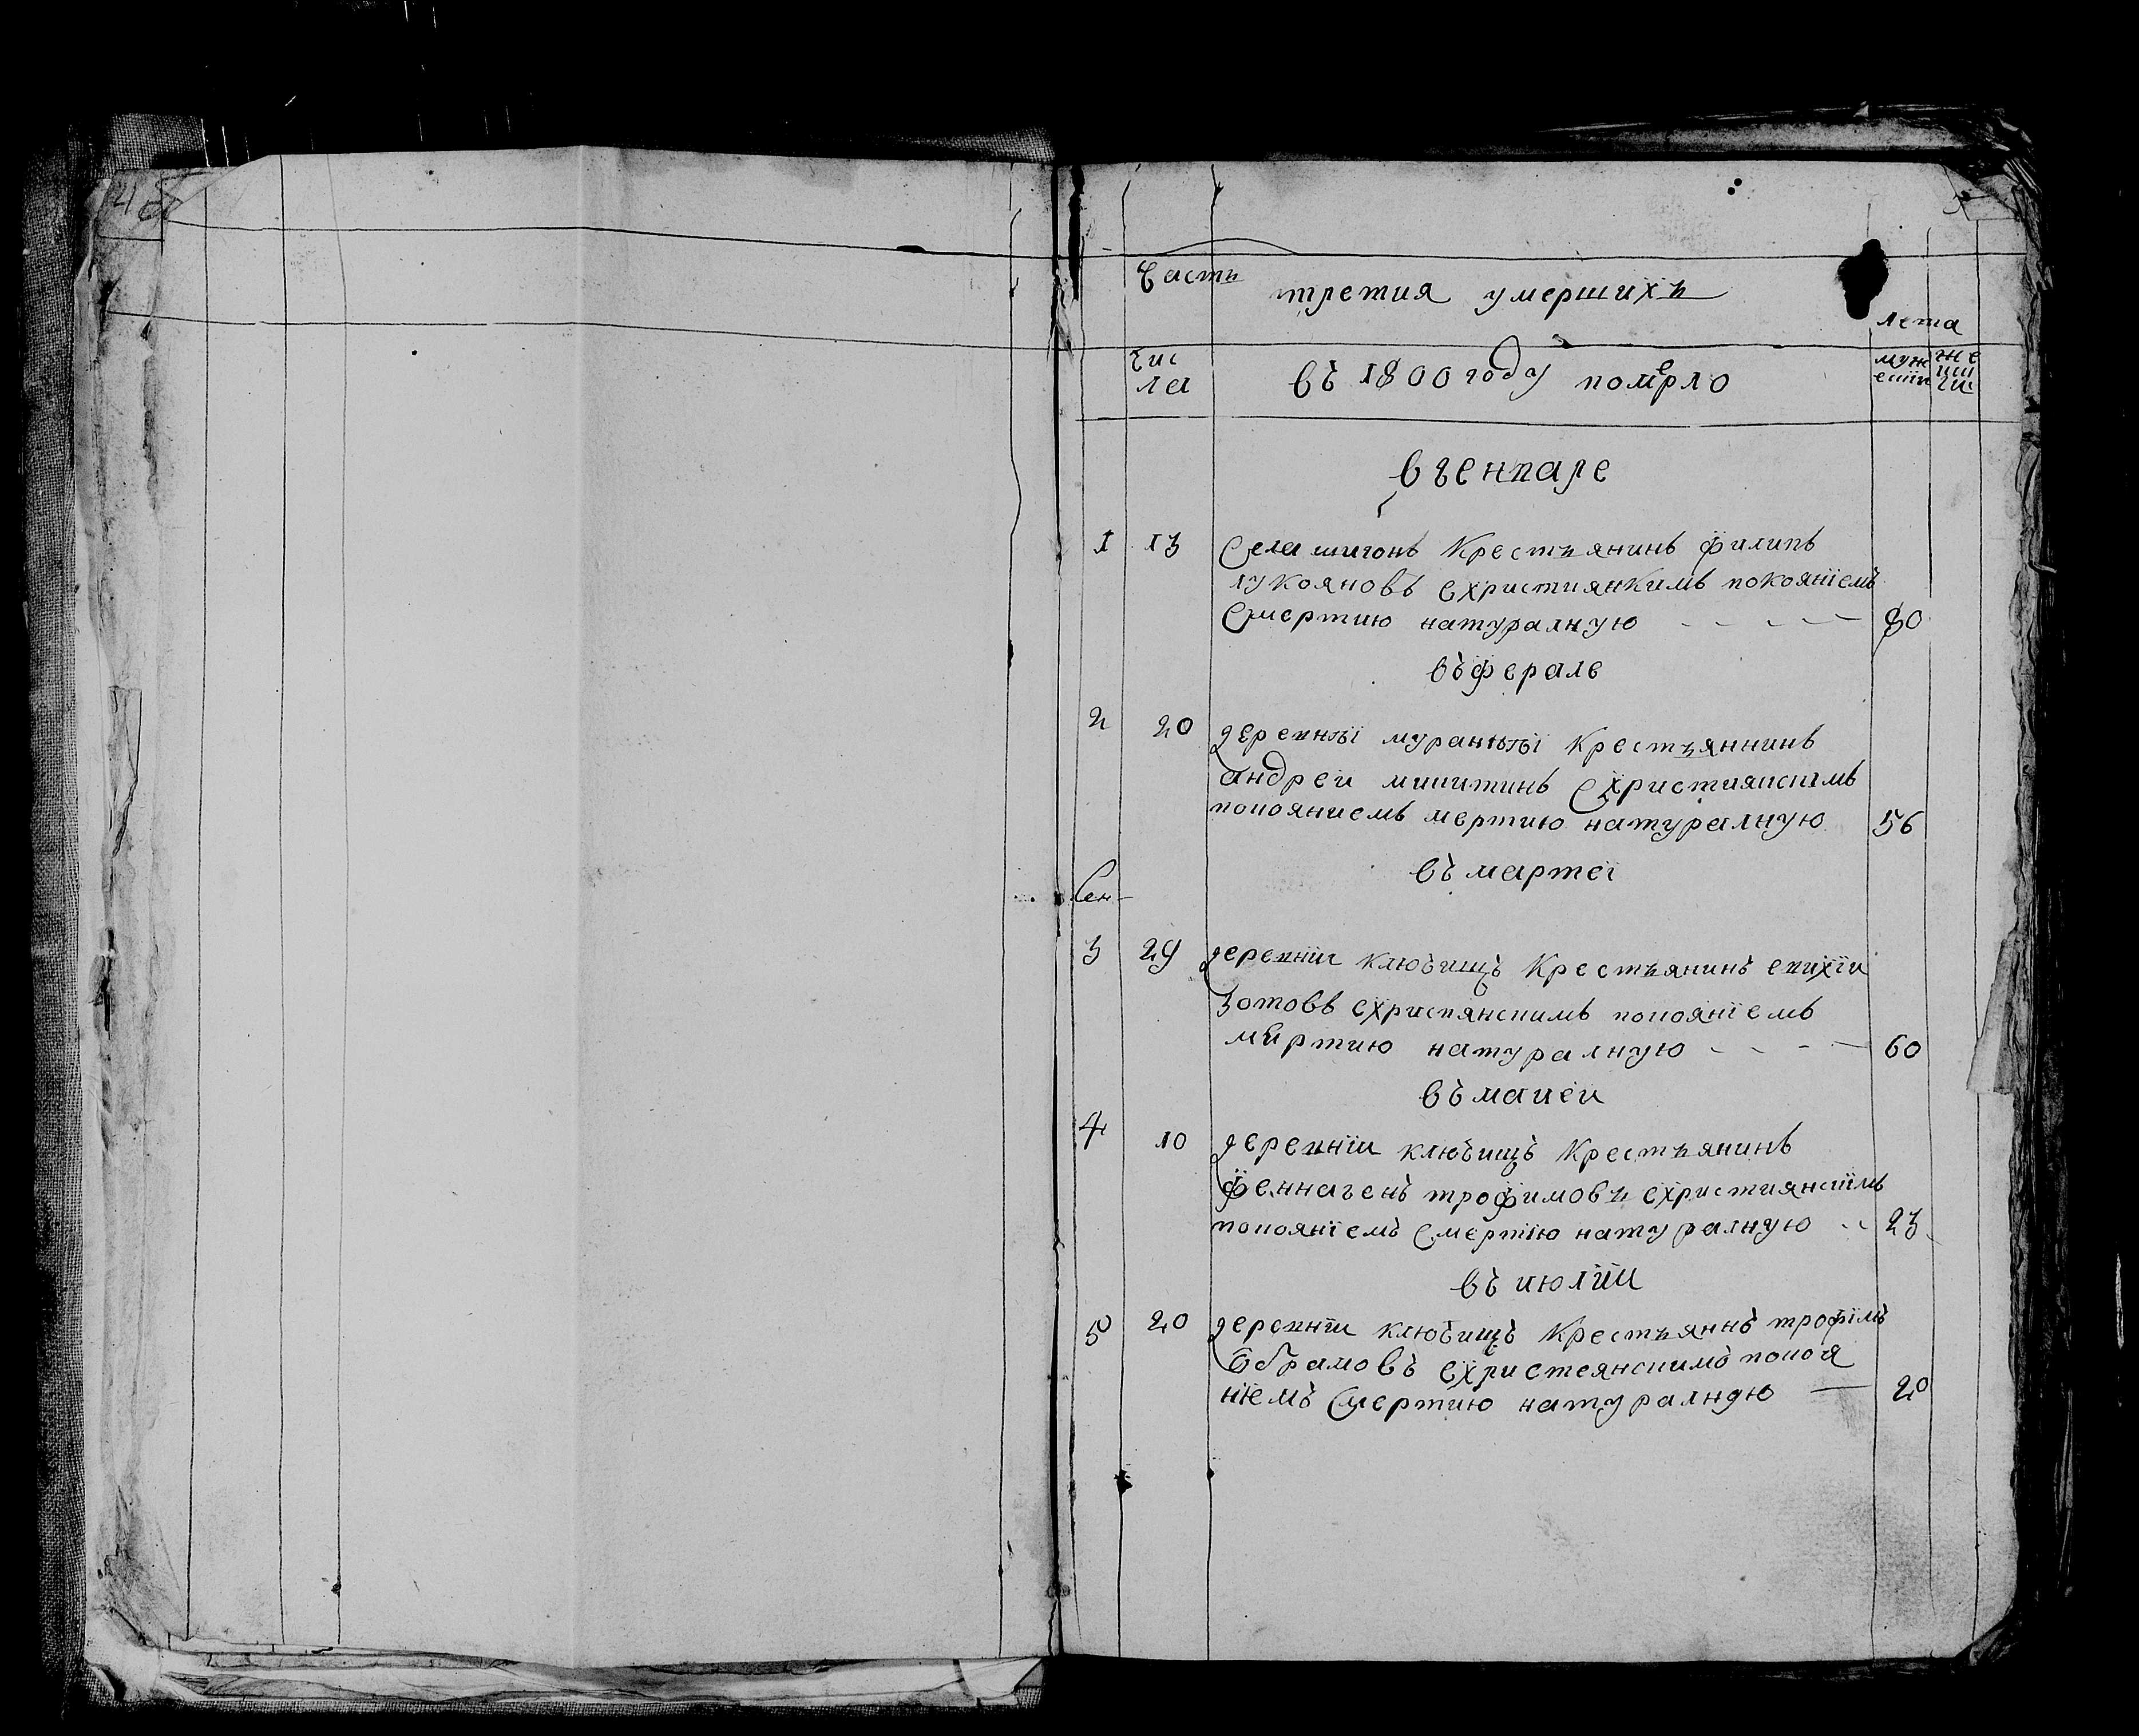 Часть третия умершихъ
лета
чис
ла
въ 1800 году померло
муж
ески
же
нш
ги
въ генваре
1 13 Села шигонъ Крестьянинъ филипъ
лукояновъ схристиянкимъ покояніемъ
Смертию натуралную 80
въ ферале
2 20 деревнѣі муранкѣі Крестьяннинъ
андреи микитинъ Схристиянскимъ
покояниемъ мертию натуралную 56
въ мартеі
Сен
3 29 деревніи ключищъ Крестьянинъ епихіи
Зотовъ схриспянскимъ покояніемъ
мертию натуралную 60
въ маиеи
4 10 деревніи ключищъ Крестьянинъ
трофимовъ схристиянскимъ
покояніемъ Смертію натуралную 23
въ июліи
5 20 деревніи ключищъ Крестьяннъ трофімъ
Обрамовъ схристеянскимъ покоя
ніемъ Смертию натуралную 20